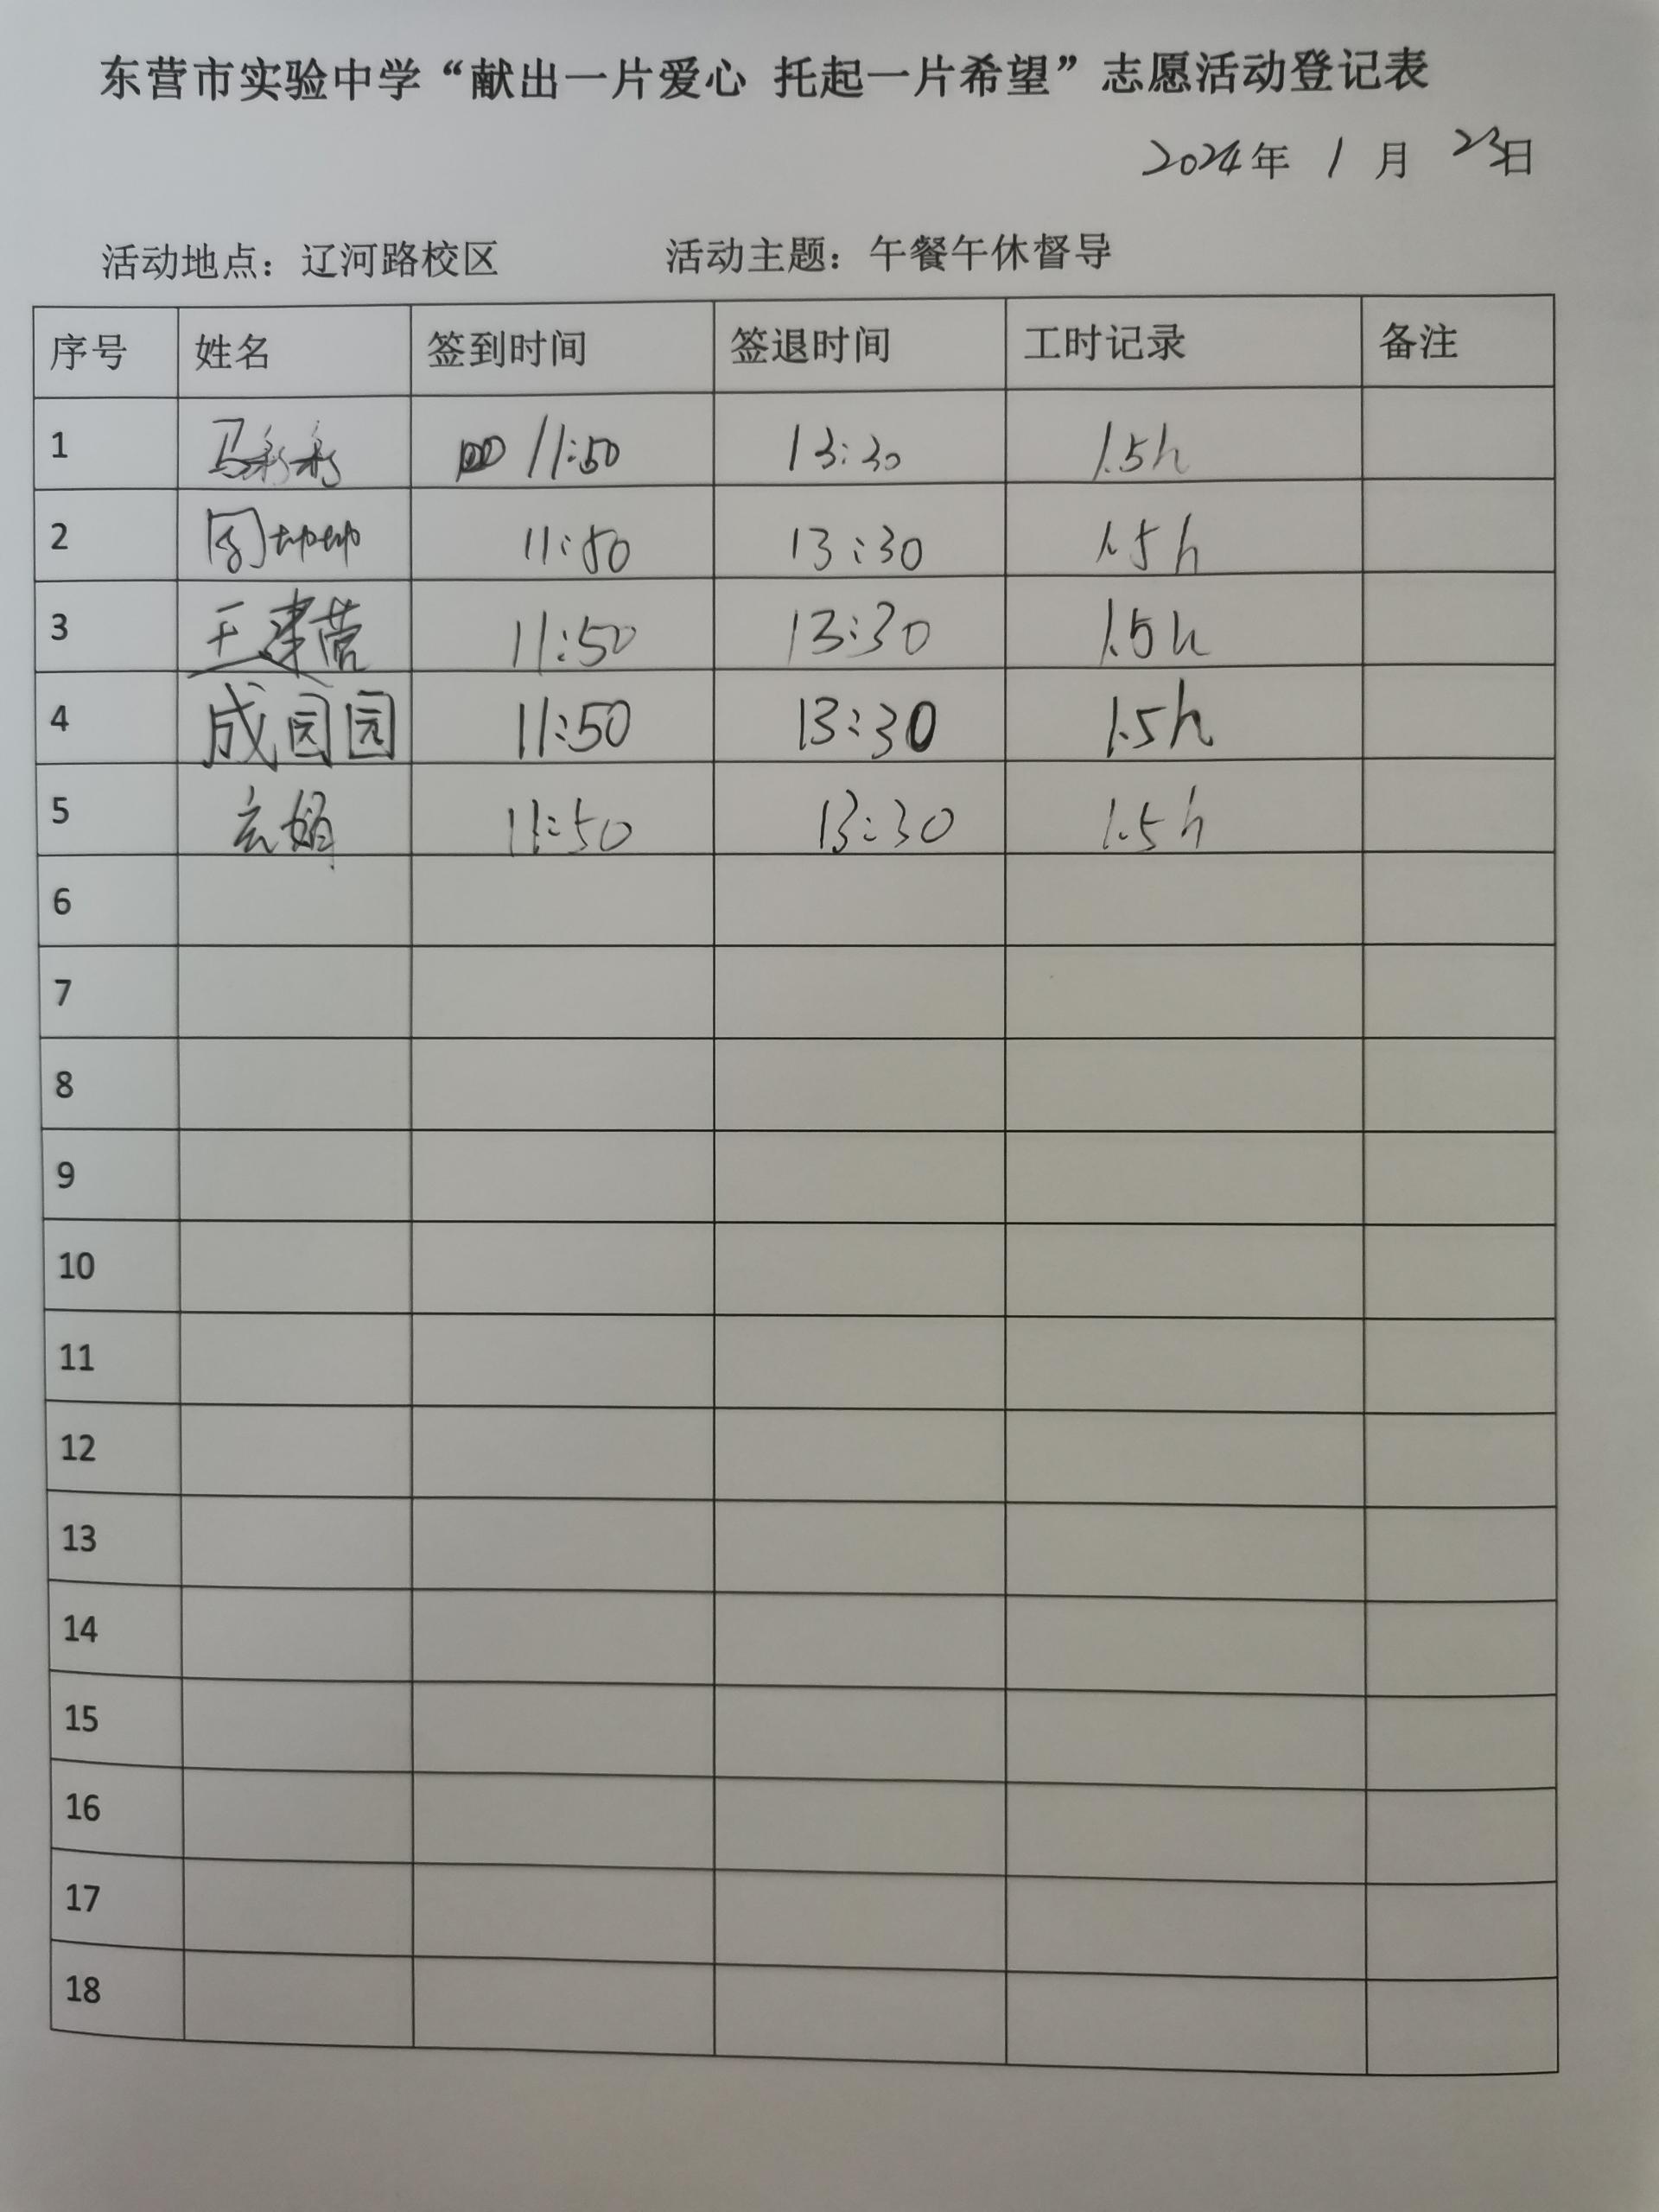 东营市实验中学“献出一片爱心 托起一片希望”志愿活动登记表
2024年 1 月 23日
活动地点：辽河路校区 活动主题：午餐午休督导
序号 姓名 签到时间 签退时间 工时记录 备注
1 马彩彩 11:50 13:30 1.5h
2 周坤坤 11:50 13:30 1.5h
3 王建营 11:50 13:30 1.5h
4 成园园 11:50 13:30 1.5h
5 玄娟 11:50 13:30 1.5h
6
7
8
9
10
11
12
13
14
15
16
17
18